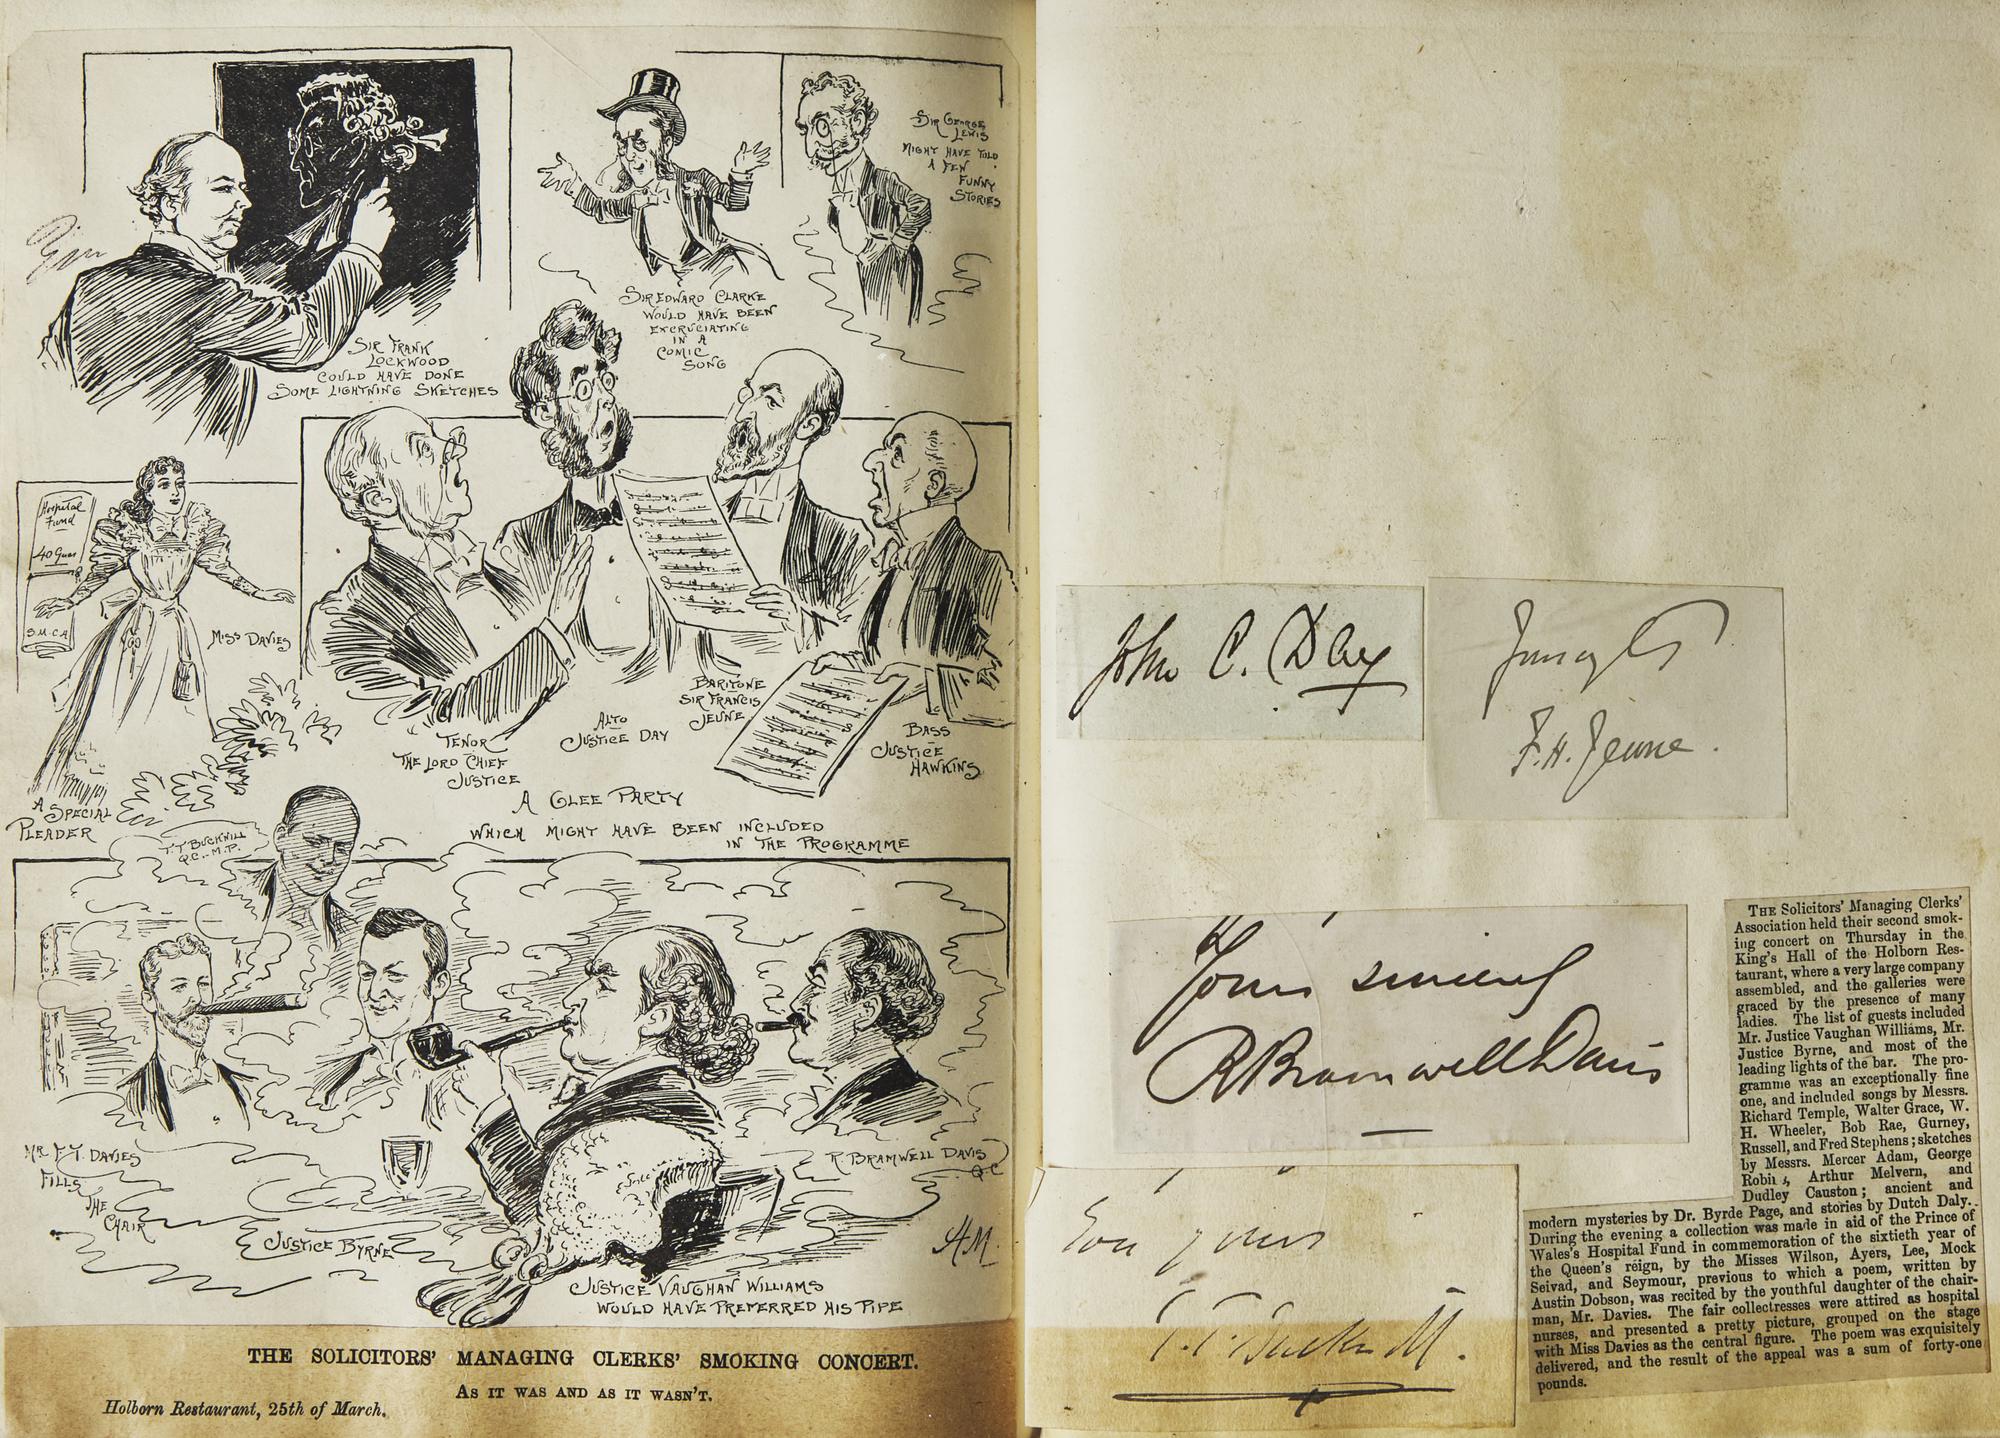 SIR FRANK
LOCKWOOD
COULD HAVE DONE
SOME LIGHTNING SKETCHES
SIR EDWARD CLARKE
WOULD HAVE BEEN
EXCRUCIATING
IN A
COMIC
SONG
SIR GEORGE
LEWIS
MIGHT HAVE TOLD
A FEW
FUNNY
STORIES
Hospital
Fund
40 Gns
S.M.C.A
MISS DAVIES
A SPECIAL
PLEADER
TENOR
THE LORD CHIEF
JUSTICE
ALTO
JUSTICE DAY
BARITONE
SIR FRANCIS
JEUNE
BASS
JUSTICE
HAWKINS
A GLEE PARTY
WHICH MIGHT HAVE BEEN INCLUDED
IN THE PROGRAMME
T.T BUCKNILL
Q.C.. M.P.
MR F.T. DAVIES
FILLS
THE
CHAIR
JUSTICE BYRNE
R. BRAMWELL DAVIS
Q C
JUSTICE VAUGHAN WILLIAMS
WOULD HAVE PREFERRED HIS PIPE
H.M.
THE SOLICITORS' MANAGING CLERKS' SMOKING CONCERT.
AS IT WAS AND AS IT WASN'T.
Holborn Restaurant, 25th of March.
John C. Day
F. H. Jeune.
Yours sincerely
R Bramwell Davis
yours
T. T. Bucknill.
THE Solicitors' Managing Clerks'
Association held their second smok-
ing concert on Thursday in the
King's Hall of the Holborn Res-
taurant, where a very large company
assembled, and the galleries were
graced by the presence of many
ladies. The list of guests included
Mr. Justice Vaughan Williams, Mr.
Justice Byrne, and most of the
leading lights of the bar. The pro-
gramme was an exceptionally fine
one, and included songs by Messrs.
Richard Temple, Walter Grace, W.
H. Wheeler, Bob Rae, Gurney,
Russell, and Fred Stephens; sketches
by Messrs. Mercer Adam, George
Robins, Arthur Melvern, and
Dudley Causton; ancient and
modern mysteries by Dr. Byrde Page, and stories by Dutch Daly.
During the evening a collection was made in aid of the Prince of
Wales's Hospital Fund in commemoration of the sixtieth year of
the Queen's reign, by the Misses Wilson, Ayers, Lee, Mock
Seivad, and Seymour, previous to which a poem, written by
Austin Dobson, was recited by the youthful daughter of the chair-
man, Mr. Davies. The fair collectresses were attired as hospital
nurses, and presented a pretty picture, grouped on the stage
with Miss Davies as the central figure. The poem was exquisitely
delivered, and the result of the appeal was a sum of forty-one
pounds.